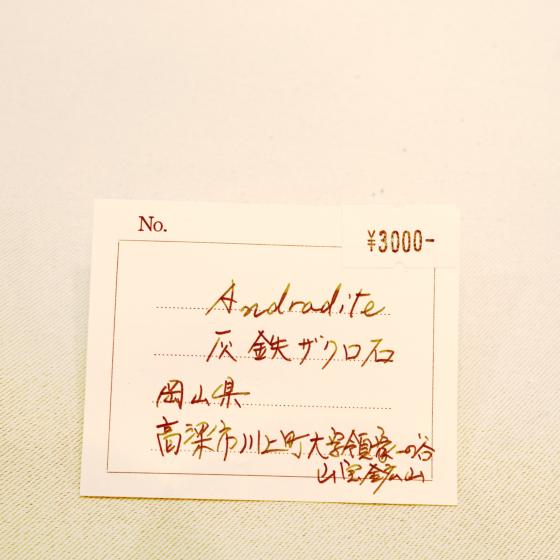 No.
¥3000-
Andradite
灰鉄ザクロ石
岡山県
高梁市川上町大字領家一の谷
山宝鉱山